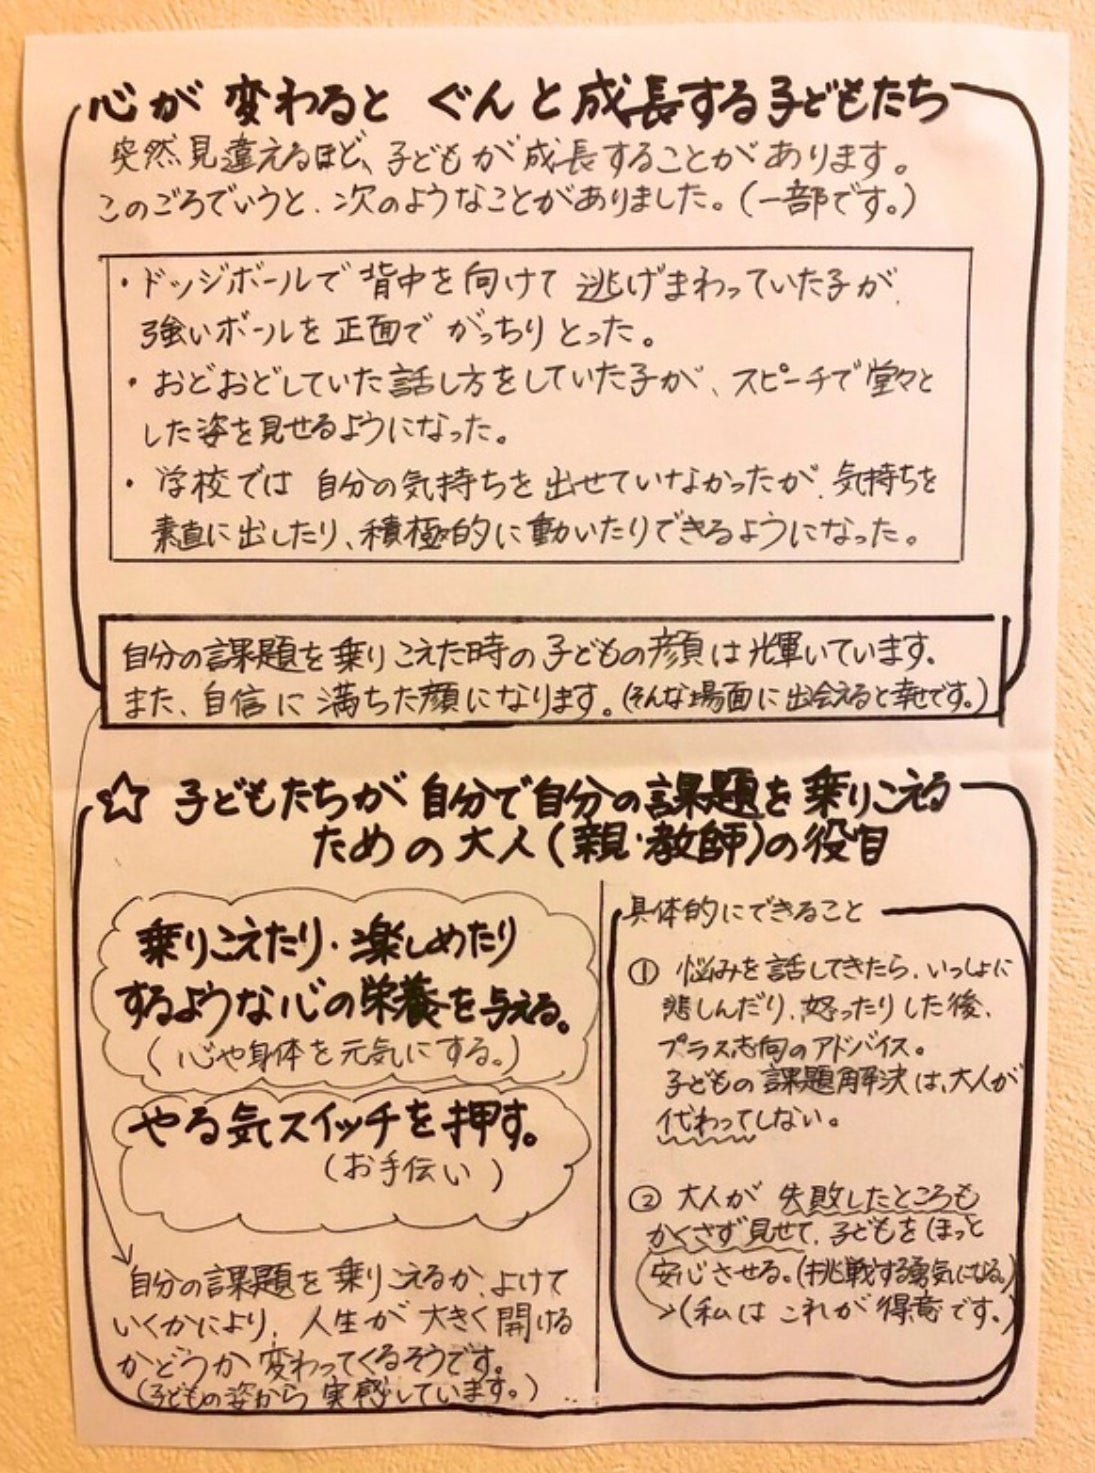 心が変わると ぐんと成長する子どもたち
突然見違えるほど、子どもが成長することがあります。
このごろでいうと、次のようなことがありました。(一部です。)
・ドッジボールで背中を向けて逃げまわっていた子が、
強いボールを正面でがっちりとった。
・おどおどしていた話し方をしていた子が、スピーチで堂々と
した姿を見せるようになった。
・学校では自分の気持ちを出せていなかったが、気持ちを
素直に出したり、積極的に動いたりできるようになった。
自分の課題を乗りこえた時の子どもの顔は輝いています。
また、自信に満ちた顔になります。(そんな場面に出会えると幸せです。)
☆子どもたちが自分で自分の課題を乗りこえる
ための大人(親・教師)の役目
乗りこえたり・楽しめたり
するような心の栄養を与える。
(心や身体を元気にする。)
やる気スイッチを押す。
(お手伝い)
自分の課題を乗りこえるか、よけて
いくかにより、人生が大きく開ける
かどうか変わってくるそうです。
(子どもの姿から実感しています。)
具体的にできること
① 悩みを話してきたら、いっしょに
悲しんだり、怒ったりした後、
プラス志向のアドバイス。
子どもの課題解決は、大人が
代わってしない。
② 大人が失敗したところも
かくさず見せて、子どもをほっと
安心させる。(挑戦する勇気になる。)
→(私はこれが得意です。)